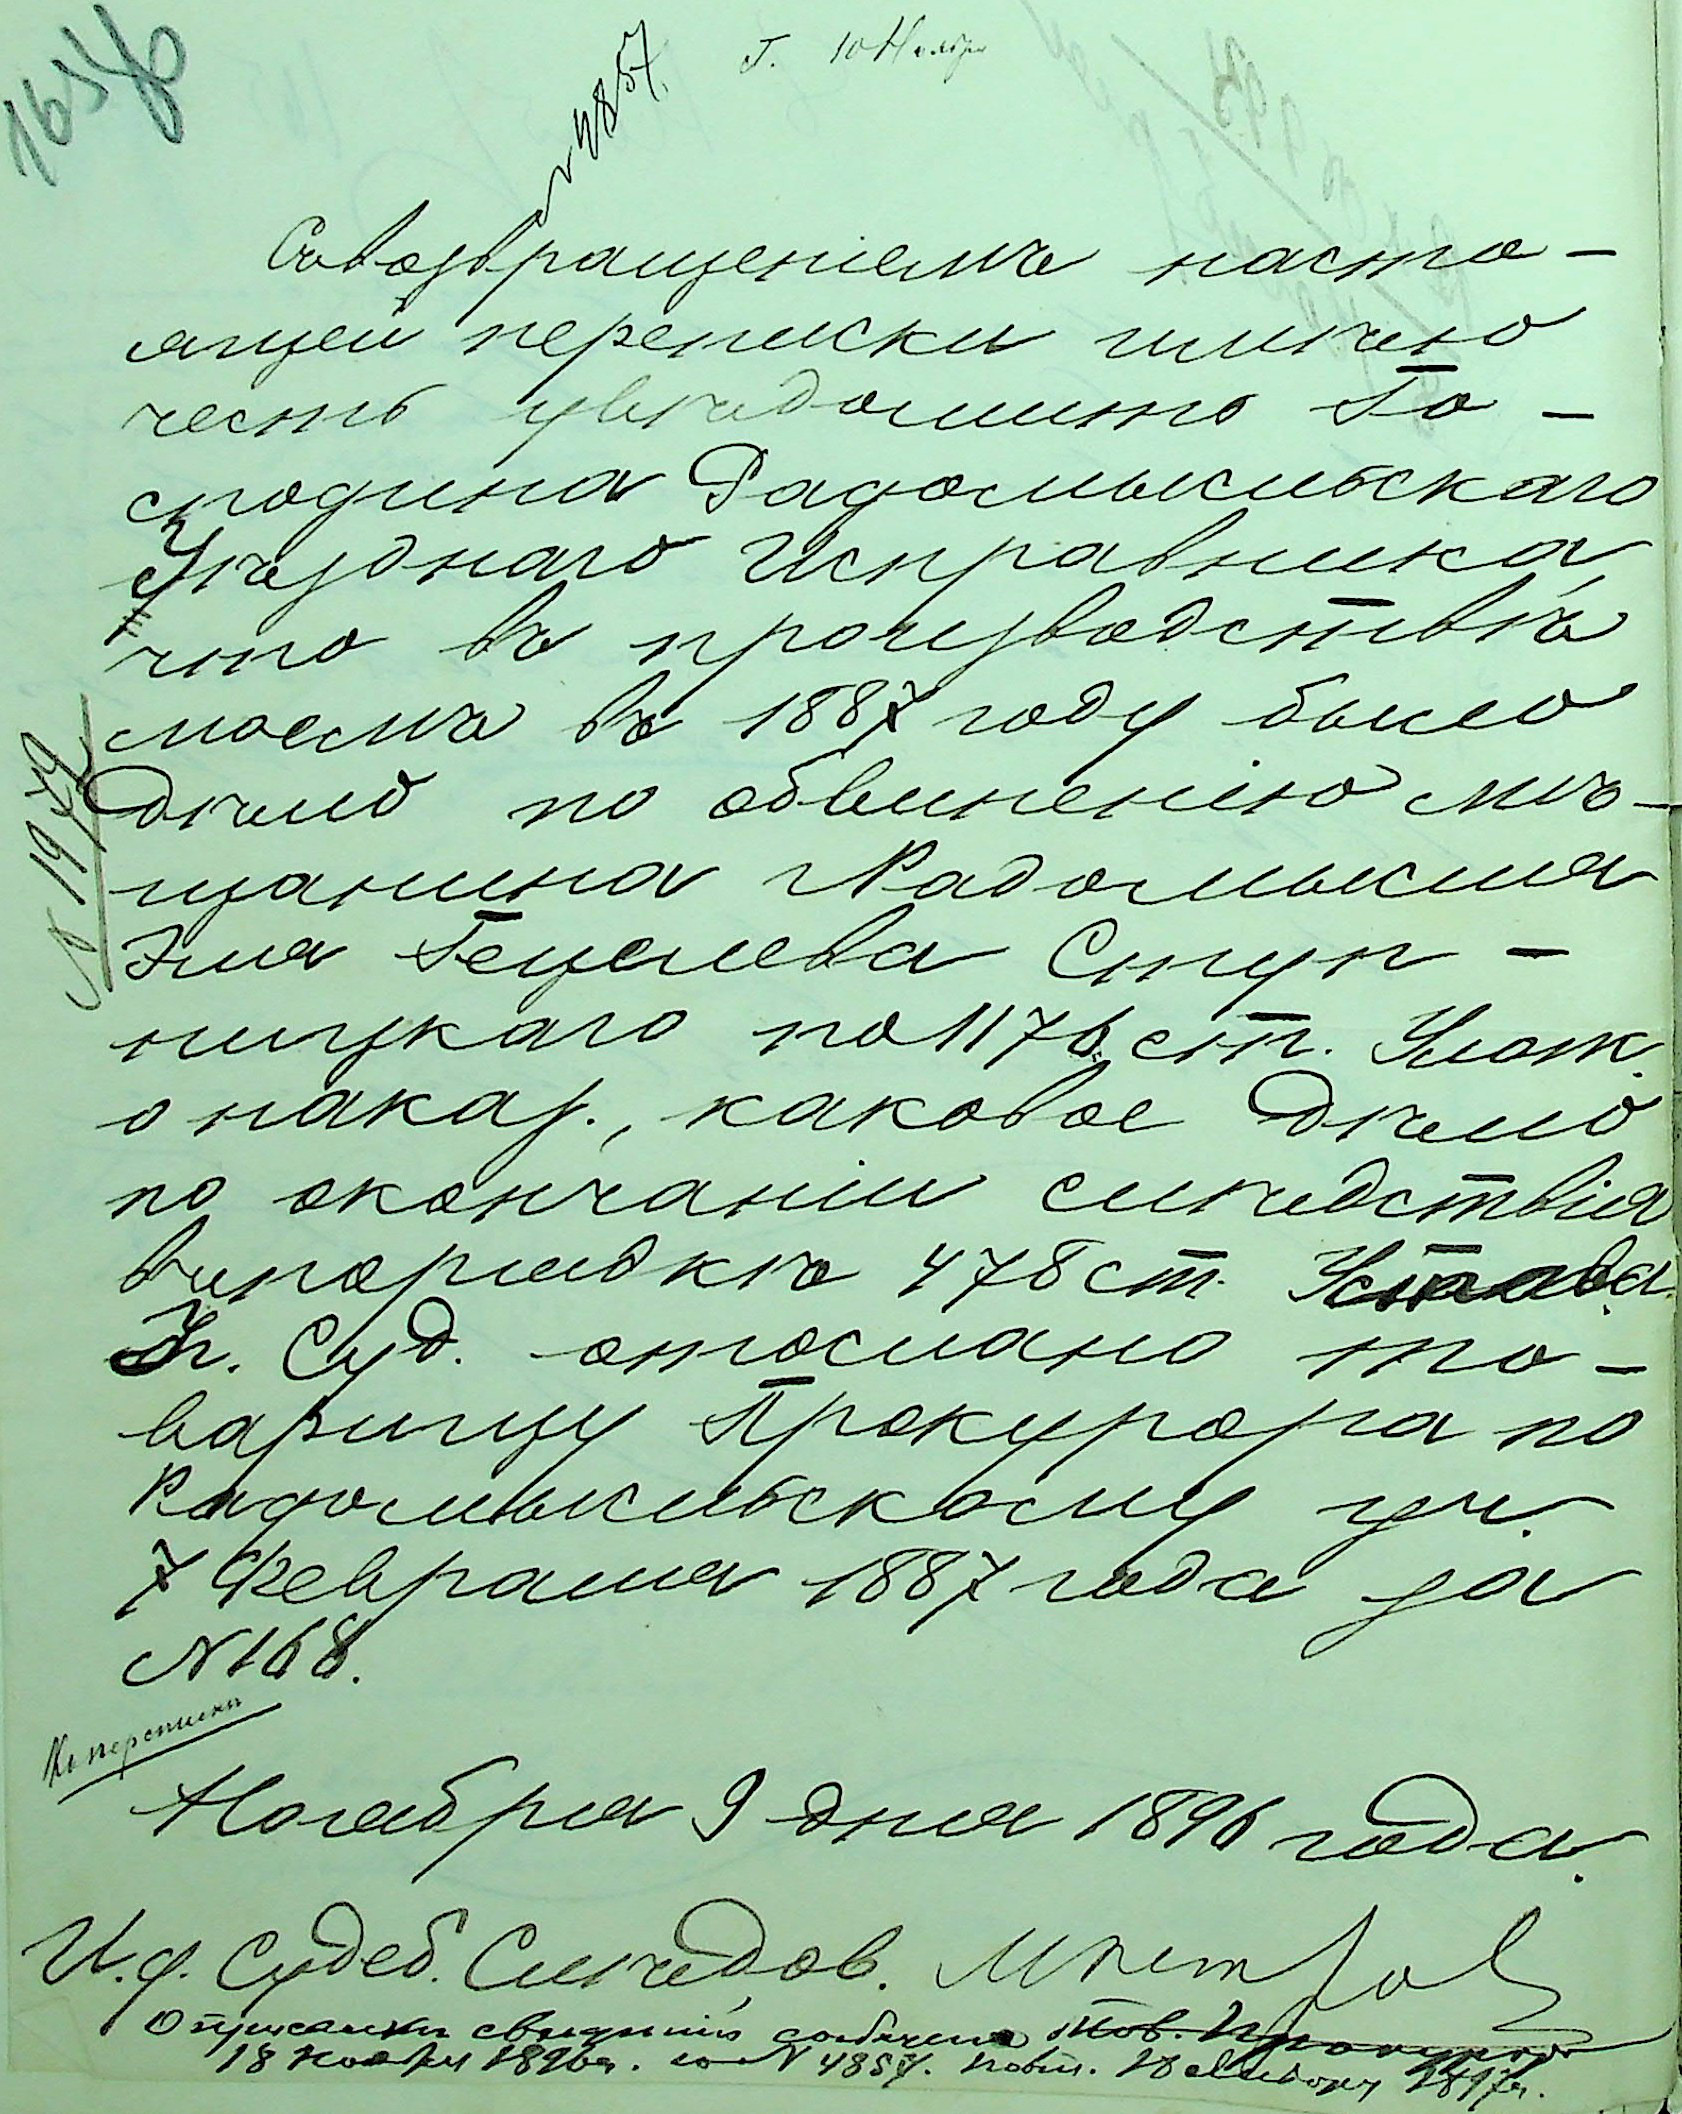 Г. 10 Ноября
№ 4857.
Съ возвращеніемъ насто-
ящей переписки имѣю
честь увѣдомить Го-
сподина Радомысльскаго
Уѣзднаго Исправника,
что въ производствѣ
моемъ въ 1887 году было
дѣло по обвиненію мѣ-
щанина г. Радомысля
Эля Гецелева Ступ-
ницкаго по 1176 ст. Улож.
о наказ., каковое дѣло
по окончаніи слѣдствія
въ порядкѣ 478 ст. Устава
Уг. Суд. отослано то-
варищу Прокурора по
Радомысльскому уч.
7 Февраля 1887 года за
№ 168.
Къ перепискѣ
Ноября 9 дня 1896 года.
И.ф. Судеб. Слѣдов. Петров
свѣдѣній Тов. Прокурора
18 Ноября 1896 г. за № 4857.